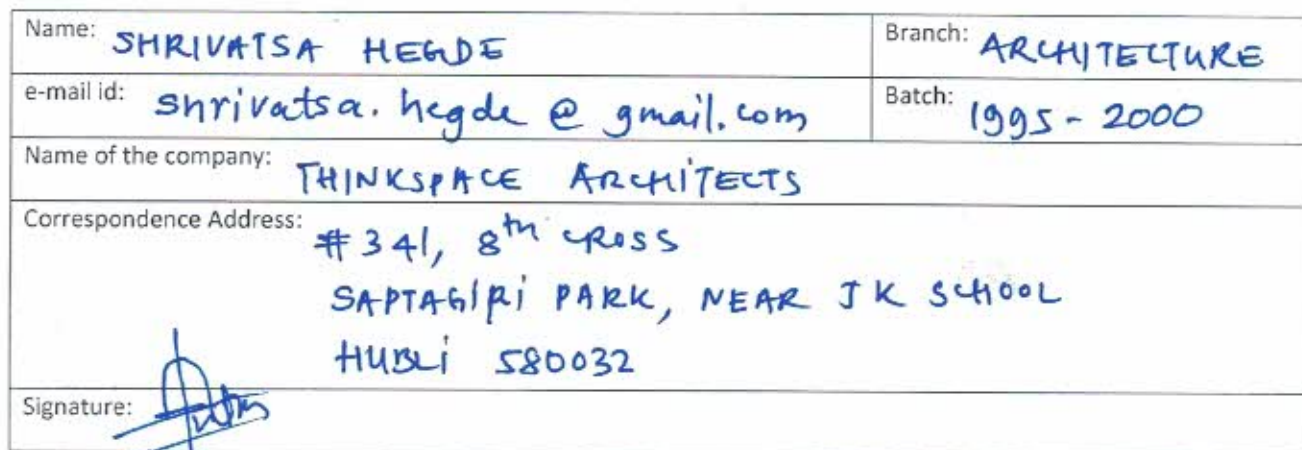 Name: SHRIVATSA HEGDE
Branch: ARCHITECTURE
e-mail id: shrivatsa.hegde@gmail.com
Batch: 1995 - 2000
Name of the company: THINKSPACE ARCHITECTS
Correspondence Address: #341, 8th CROSS
SAPTAGIRI PARK, NEAR JK SCHOOL
HUBLI 580032
Signature: